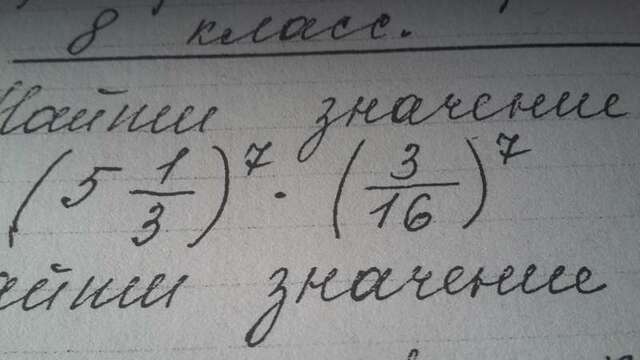 8 класс.
Найти значение
(5 1/3)^7 · (3/16)^7
айти значение